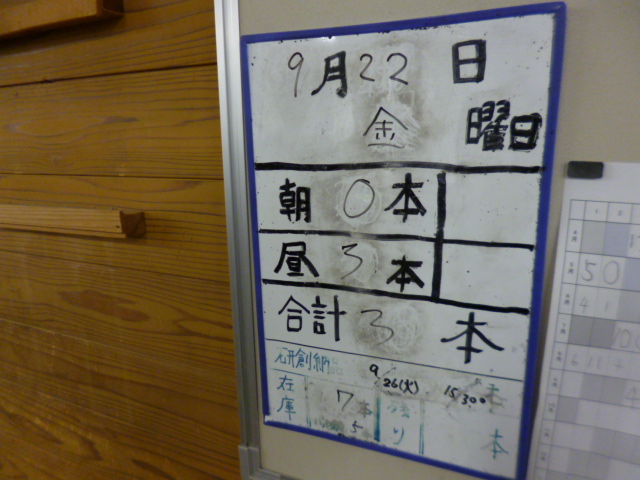 9月22日
金曜日
朝 0本
昼 3本
合計 3本
研創納品 9/26(火) 15:300 本
在庫 7本 残り 本
5
50